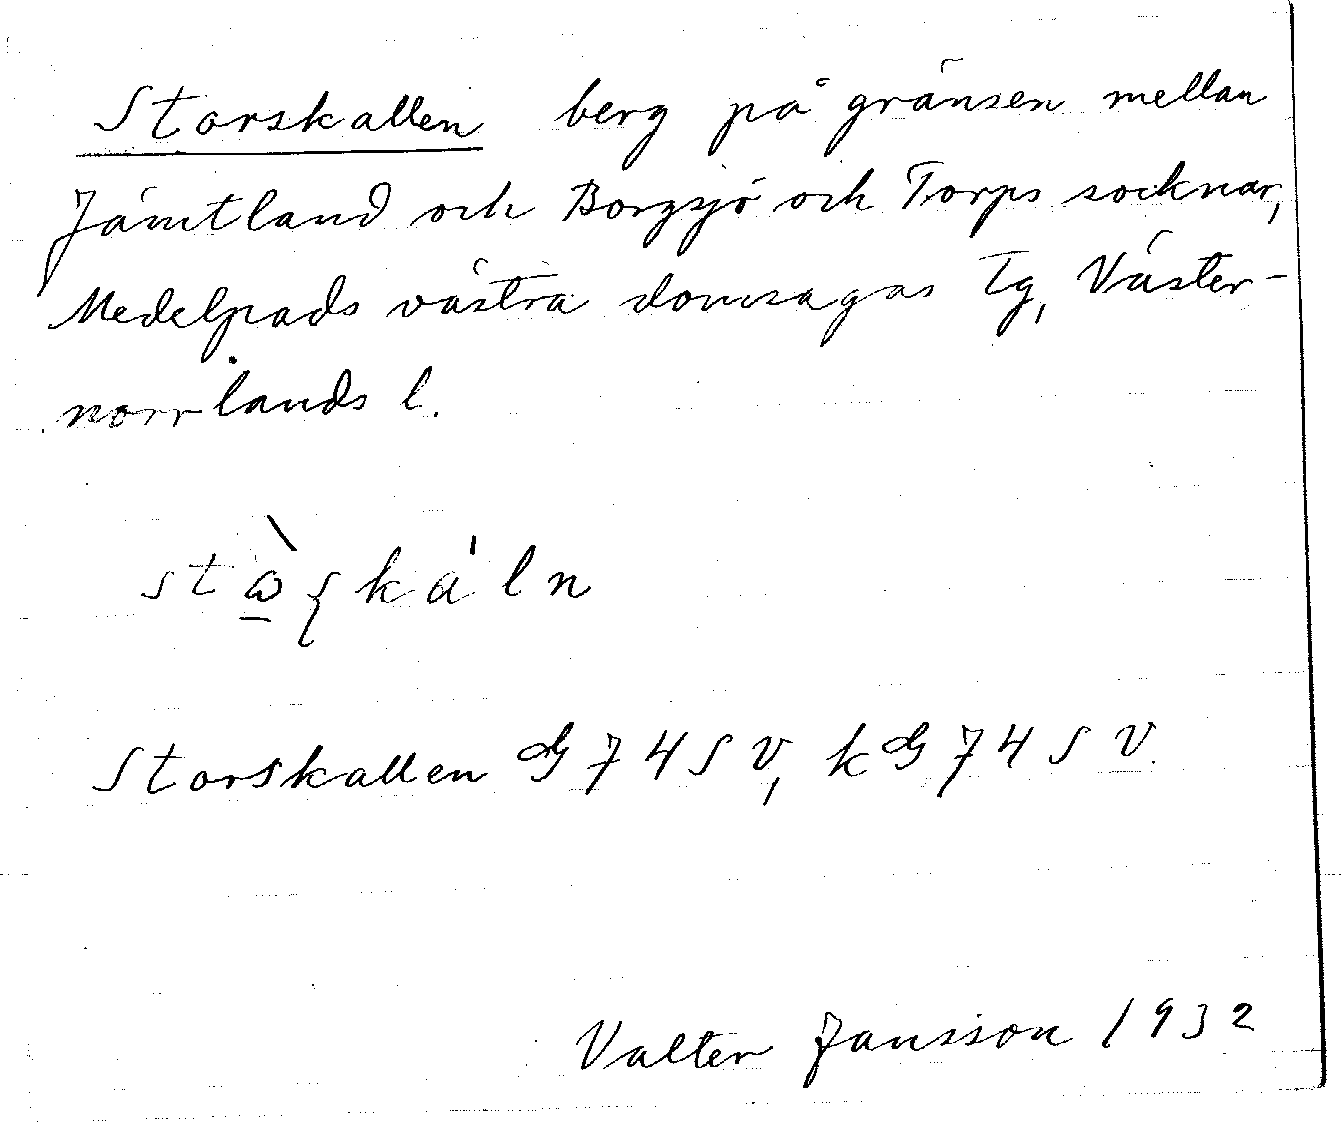 Storskallen berg på gränsen mellan
Jämtland och Borgsjö och Torps socknar,
Medelpads västra domsagas Tg, Väster-
norrlands l.
Storskallen G 74 SV, kG 74 SV.
Valter Jansson 1932